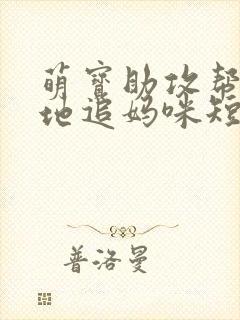 萌宝助攻帮
地追妈咪短
普洛曼